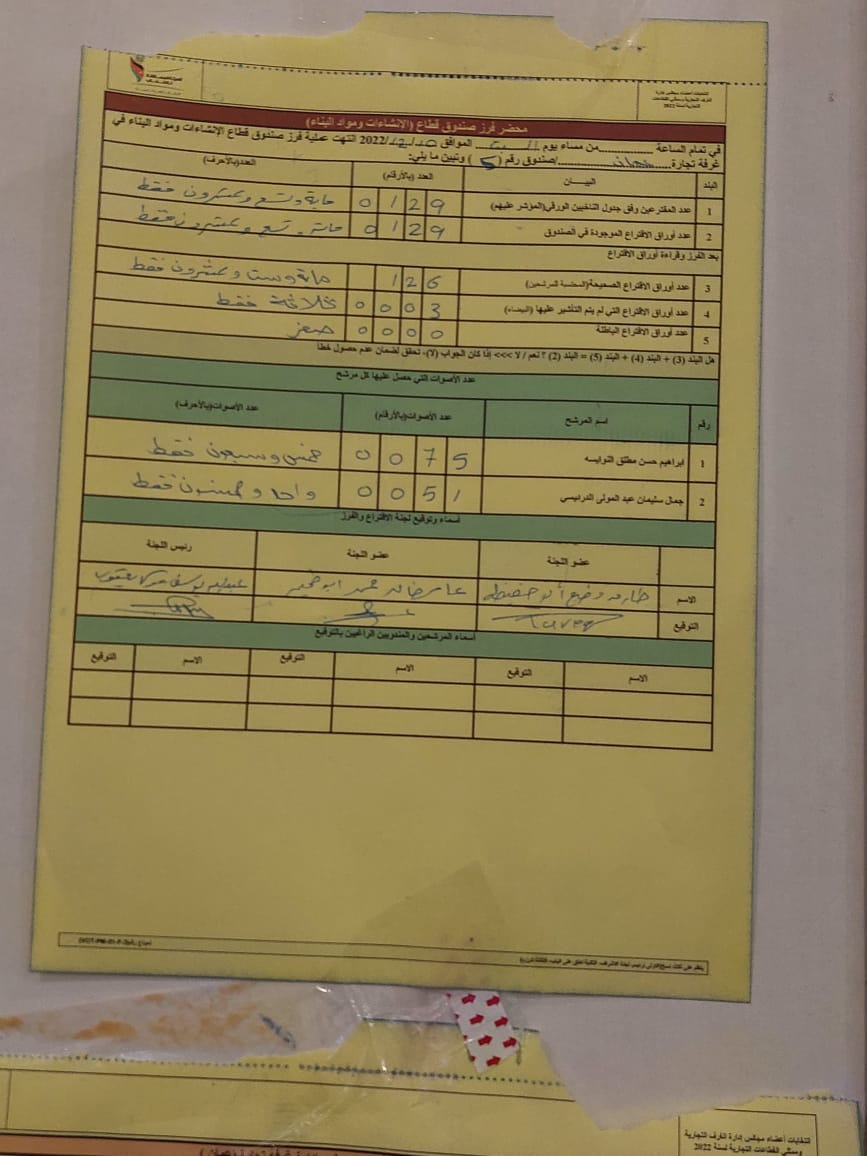 انتخابات أعضاء مجلس إدارة
الغرف التجارية وممثلي القطاعات
التجارية لسنة 2022
محضر فرز صندوق قطاع (الانشاءات ومواد البناء)
في تمام الساعة ............... من مساء يوم السبت الموافق 10/12/2022 انتهت عملية فرز صندوق قطاع الإنشاءات ومواد البناء في
غرفة تجارة عمان /صندوق رقم (5) وتبين ما يلي:
البند البيـــــان العدد (بالأرقام) العدد(بالأحرف)
1 عدد المقترعين وفق جدول الناخبين الورقي(المؤشر عليهم) 0 1 2 9 ماية وتسع وعشرون فقط
2 عدد أوراق الاقتراع الموجودة في الصندوق 0 1 2 9 ماية وتسع وعشرون فقط
بعد الفرز وقراءة أوراق الاقتراع
3 عدد أوراق الاقتراع الصحيحة(المحتسبة للمرشحين) 1 2 6 ماية وست وعشرون فقط
4 عدد أوراق الاقتراع التي لم يتم التأشير عليها (البيضاء) 0 0 0 3 ثلاثة فقط
5 عدد أوراق الاقتراع الباطلة 0 0 0 0 صفر
هل البند (3) + البند (4) + البند (5) = البند (2) ؟ نعم / لا >>> إذا كان الجواب (لا)، تحقق لضمان عدم حصول خطأ
عدد الأصوات التي حصل عليها كل مرشح
رقم اسم المرشح عدد الأصوات(بالأرقام) عدد الأصوات(بالأحرف)
1 ابراهيم حسن مطلق النوايسه 0 0 7 5 خمس وسبعون فقط
2 جمال سليمان عبد المولى الدرابيسي 0 0 5 1 واحد وخمسون فقط
أسماء وتوقيع لجنة الاقتراع والفرز
عضو اللجنة عضو اللجنة رئيس اللجنة
الاسم
التوقيع
أسماء المرشحين والمندوبين الراغبين بالتوقيع
الاسم التوقيع الاسم التوقيع الاسم التوقيع
انتخابات أعضاء مجلس إدارة الغرف التجارية
وممثلي القطاعات التجارية لسنة 2022